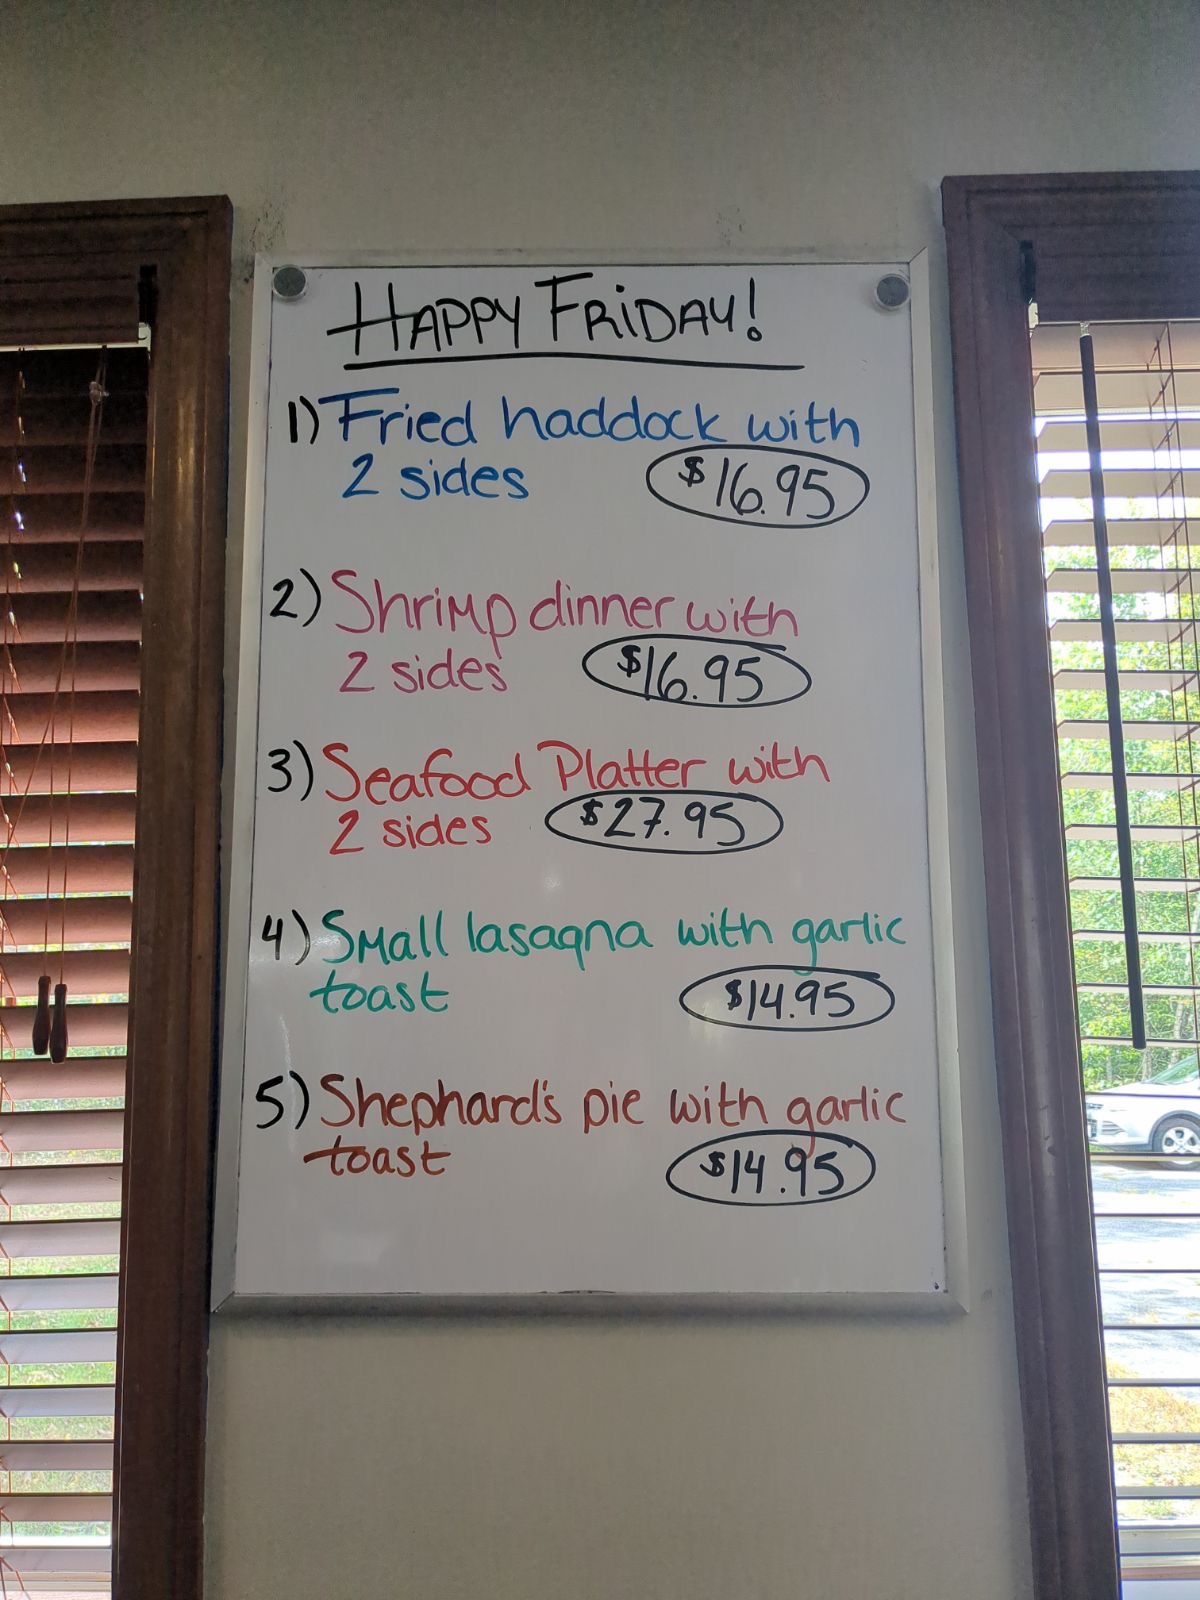 HAPPY FRIDAY!
1) Fried haddock with
2 sides $16.95
2) Shrimp dinner with
2 sides $16.95
3) Seafood Platter with
2 sides $27.95
4) Small lasagna with garlic
toast $14.95
5) Shephard's pie with garlic
toast $14.95